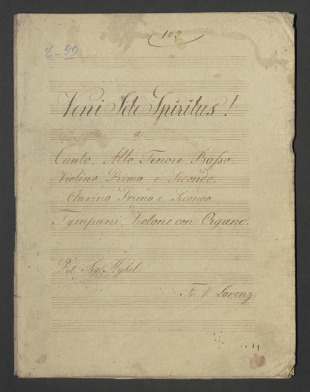 102
Veni Ste Spiritus!
a
Canto, Alto Tenore, Basso.
Violino Primo e Secondo.
Clarino Primo e Secondo
Tympani, Violone con Organo.
Del Sig.
Fr. V. Lorenz